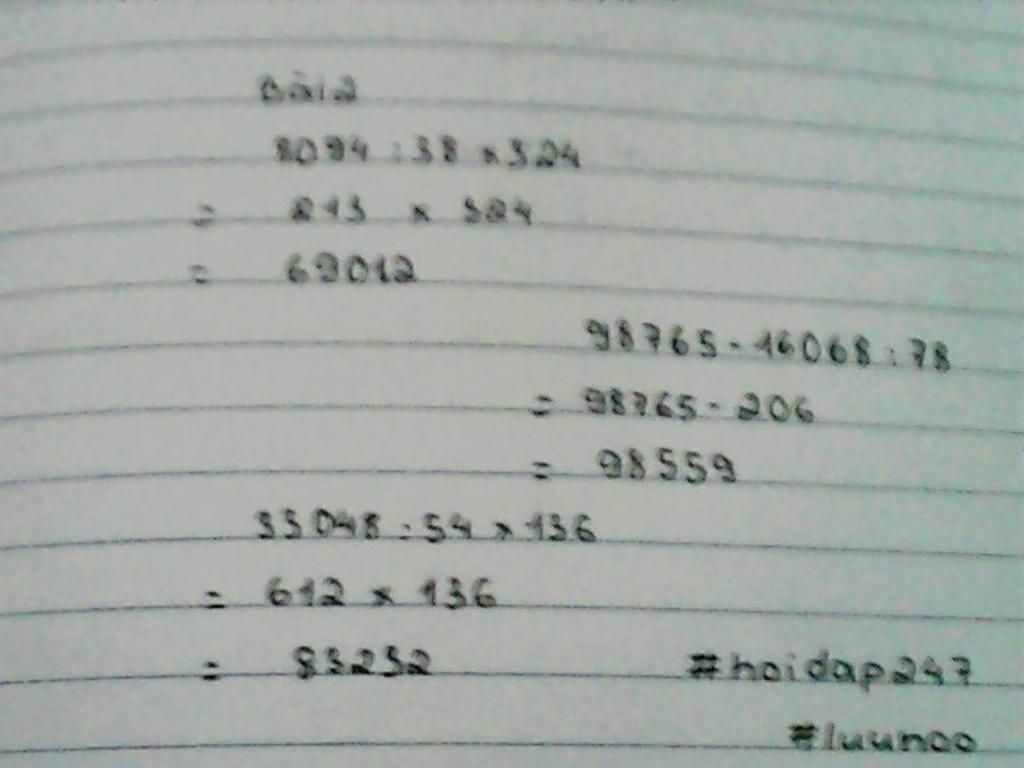 Bài 2
8094 : 38 x 324
= 213 x 324
= 69012
98765 - 16068 : 78
= 98765 - 206
= 98559
33048 : 54 x 136
= 612 x 136
= 83232
#hoidap247
#luunoo